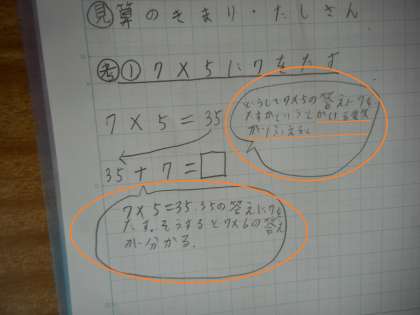 見 算のきまり・たしさん
考 ① 7×5に7をたす
どうして7×5の答えに7を
たすかというとかける数
がふえる
7×5=35
35+7=□
7×5=35.35の答えに7を
たす。そうすると7×6の答え
が分かる。